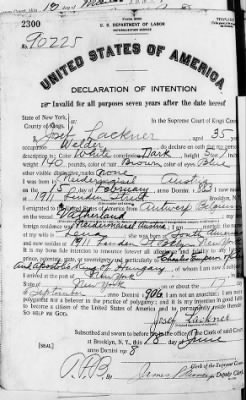 2300
U. S. DEPARTMENT OF LABOR
No. 90225
UNITED STATES OF AMERICA
DECLARATION OF INTENTION
Invalid for all purposes seven years after the date hereof
State of New York,
County of Kings,
In the Supreme Court of Kings County
Josef Lackner, aged 35
occupation Welder, do declare on oath that my personal
description is: Color White, complexion Dark, height 5
weight 140 pounds, color of hair Brown, color of eyes Blue
other visible distinctive marks none
Austria
on the 15 day of February, anno Domini 1883
at 1911 Linden Street
I emigrated to the United States of America from Antwerp Belgium
on the vessel Vaderland
residence was
of my wife is
and now resides at 1911 Linden St. Brooklyn New York
It is my bona fide intention to renounce forever all allegiance and fidelity to any foreign
prince, potentate, state, or sovereignty, and particularly to Charles Emperor of Austria
and Apostolic King of Hungary, of whom I am now a subject
I arrived at the port of New York
State of New York, on or about the 17 day
of September, anno Domini 1906; I am not an anarchist; I am not a
polygamist nor a believer in the practice of polygamy; and it is my intention in good faith
to become a citizen of the United States of America and to permanently reside therein:
So help me God.
Josef Lackner
Subscribed and sworn to before me in the office of the Clerk of said Court
at Brooklyn, N. Y., this 18 day of June
[SEAL]
anno Domini 1918
Clerk of the Supreme Court.
Deputy Clerk